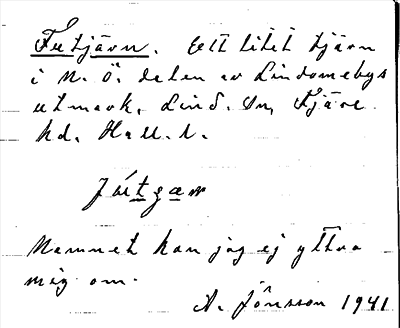 Futjärn. Ett litet tjärn
i N. Ö. delen av Lindomebys
utmark, Lind. sn, Fjäre
hd. Hall. l.
Namnet kan jag ej yttra
mig om.
A. Jönsson 1941